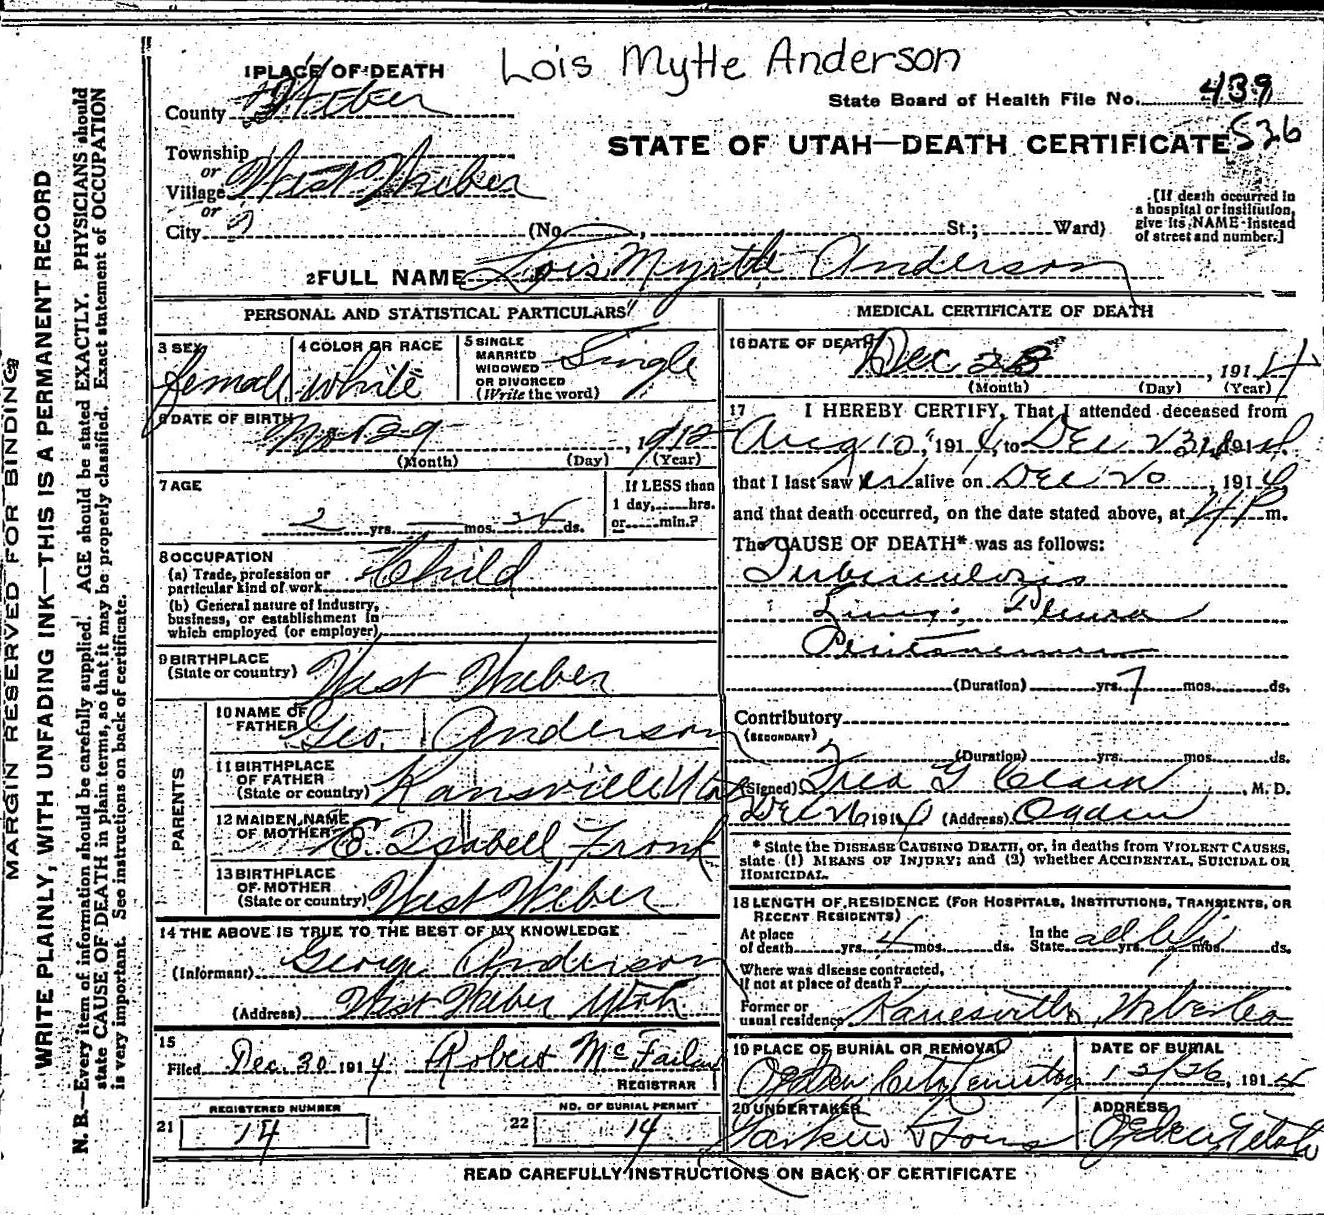 Lois Mytle Anderson
1 PLACE OF DEATH
County Weber
State Board of Health File No. 439
536
STATE OF UTAH—DEATH CERTIFICATE
Township
or
Village West Weber
or
City
(No. , St.; Ward)
[If death occurred in
a hospital or institution,
give its NAME instead
of street and number.]
2 FULL NAME Lois Myrtle Anderson
PERSONAL AND STATISTICAL PARTICULARS
3 SEX Female
4 COLOR OR RACE White
5 SINGLE
MARRIED
WIDOWED
OR DIVORCED
(Write the word)
Single
6 DATE OF BIRTH Nov 29, 1912
(Month) (Day) (Year)
7 AGE
2 yrs. mos. 24 ds.
If LESS than
1 day, hrs.
or min.?
8 OCCUPATION
(a) Trade, profession or
particular kind of work Child
(b) General nature of industry,
business, or establishment in
which employed (or employer)
9 BIRTHPLACE
(State or country) West Weber
PARENTS
10 NAME OF
FATHER Geo. Anderson
11 BIRTHPLACE
OF FATHER
(State or country) Kansville Utah
12 MAIDEN NAME
OF MOTHER E. Isabell Fronk
13 BIRTHPLACE
OF MOTHER
(State or country) West Weber
14 THE ABOVE IS TRUE TO THE BEST OF MY KNOWLEDGE
(Informant) George Anderson
(Address) West Weber Utah
15
Filed Dec. 30 1914 Robert McFarlan
REGISTRAR
REGISTERED NUMBER
21 14
NO. OF BURIAL PERMIT
22 14
MEDICAL CERTIFICATE OF DEATH
16 DATE OF DEATH Dec 23, 1914
(Month) (Day) (Year)
17 I HEREBY CERTIFY, That I attended deceased from
Aug 10, 1914, to Dec 23rd 1914
that I last saw her alive on Dec 20, 1914
and that death occurred, on the date stated above, at 4 P m.
The CAUSE OF DEATH* was as follows:
Tuberculosis
Lung; Pleura
Peritoneum
(Duration) yrs. 7 mos. ds.
Contributory
(SECONDARY)
(Duration) yrs. mos. ds.
(Signed) Fred G Clark, M. D.
Dec 26 1914 (Address) Ogden
* State the DISEASE CAUSING DEATH, or, in deaths from VIOLENT CAUSES,
state (1) MEANS OF INJURY; and (2) whether ACCIDENTAL, SUICIDAL OR
HOMICIDAL.
18 LENGTH OF RESIDENCE (FOR HOSPITALS, INSTITUTIONS, TRANSIENTS, OR
RECENT RESIDENTS)
At place
of death yrs. 4 mos. ds.
In the
State all life yrs. mos. ds.
Where was disease contracted,
If not at place of death?
Former or
usual residence Kanesville, Weber Co
19 PLACE OF BURIAL OR REMOVAL
Ogden City Cemetery
DATE OF BURIAL
12/26, 1914
20 UNDERTAKER
Larkin & Sons
ADDRESS
Ogden Utah
READ CAREFULLY INSTRUCTIONS ON BACK OF CERTIFICATE
MARGIN RESERVED FOR BINDING
WRITE PLAINLY, WITH UNFADING INK—THIS IS A PERMANENT RECORD
N. B.—Every item of information should be carefully supplied. AGE should be stated EXACTLY. PHYSICIANS should
state CAUSE OF DEATH in plain terms, so that it may be properly classified. Exact statement of OCCUPATION
is very important. See instructions on back of certificate.